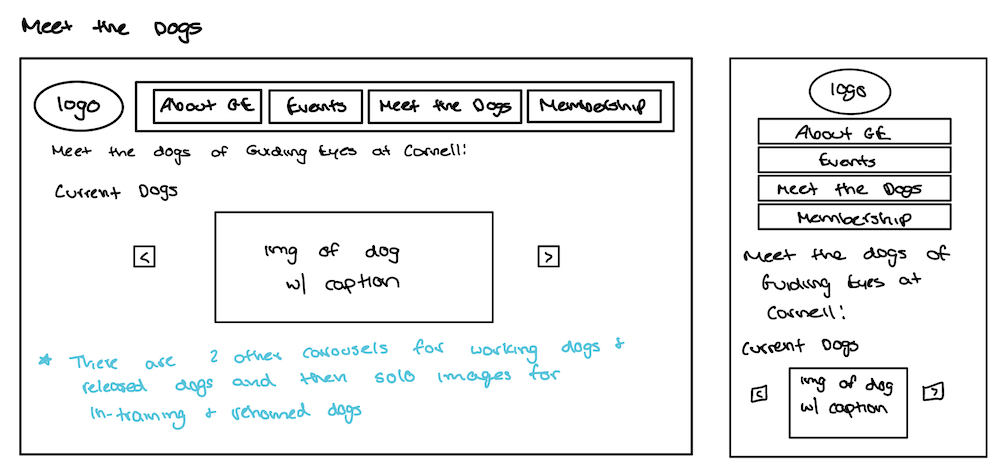 Meet the Dogs
logo
About GE
Events
Meet the Dogs
Membership
Meet the dogs of Guiding Eyes at Cornell!
Current Dogs
<
img of dog
w/ caption
>
* There are 2 other carousels for working dogs &
released dogs and then solo images for
in-training & rehomed dogs
logo
About GE
Events
Meet the Dogs
Membership
Meet the dogs of
Guiding Eyes at
Cornell!
Current Dogs
<
img of dog
w/ caption
>